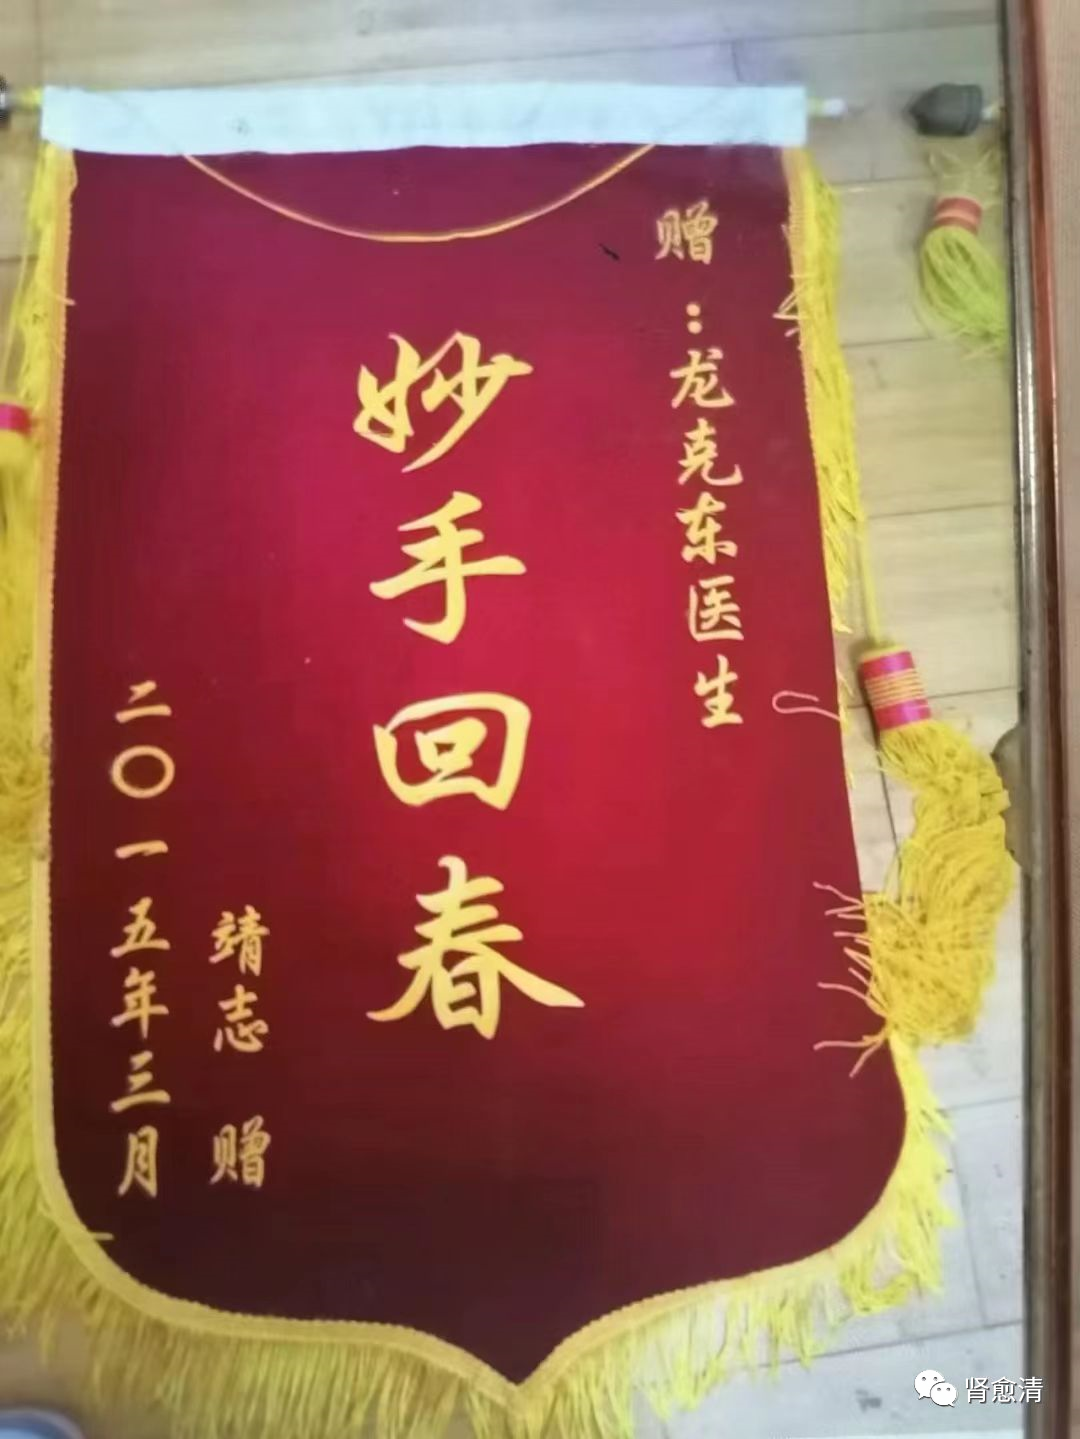 赠：龙克东医生
妙手回春
靖志 赠
二〇一五年三月
肾愈清